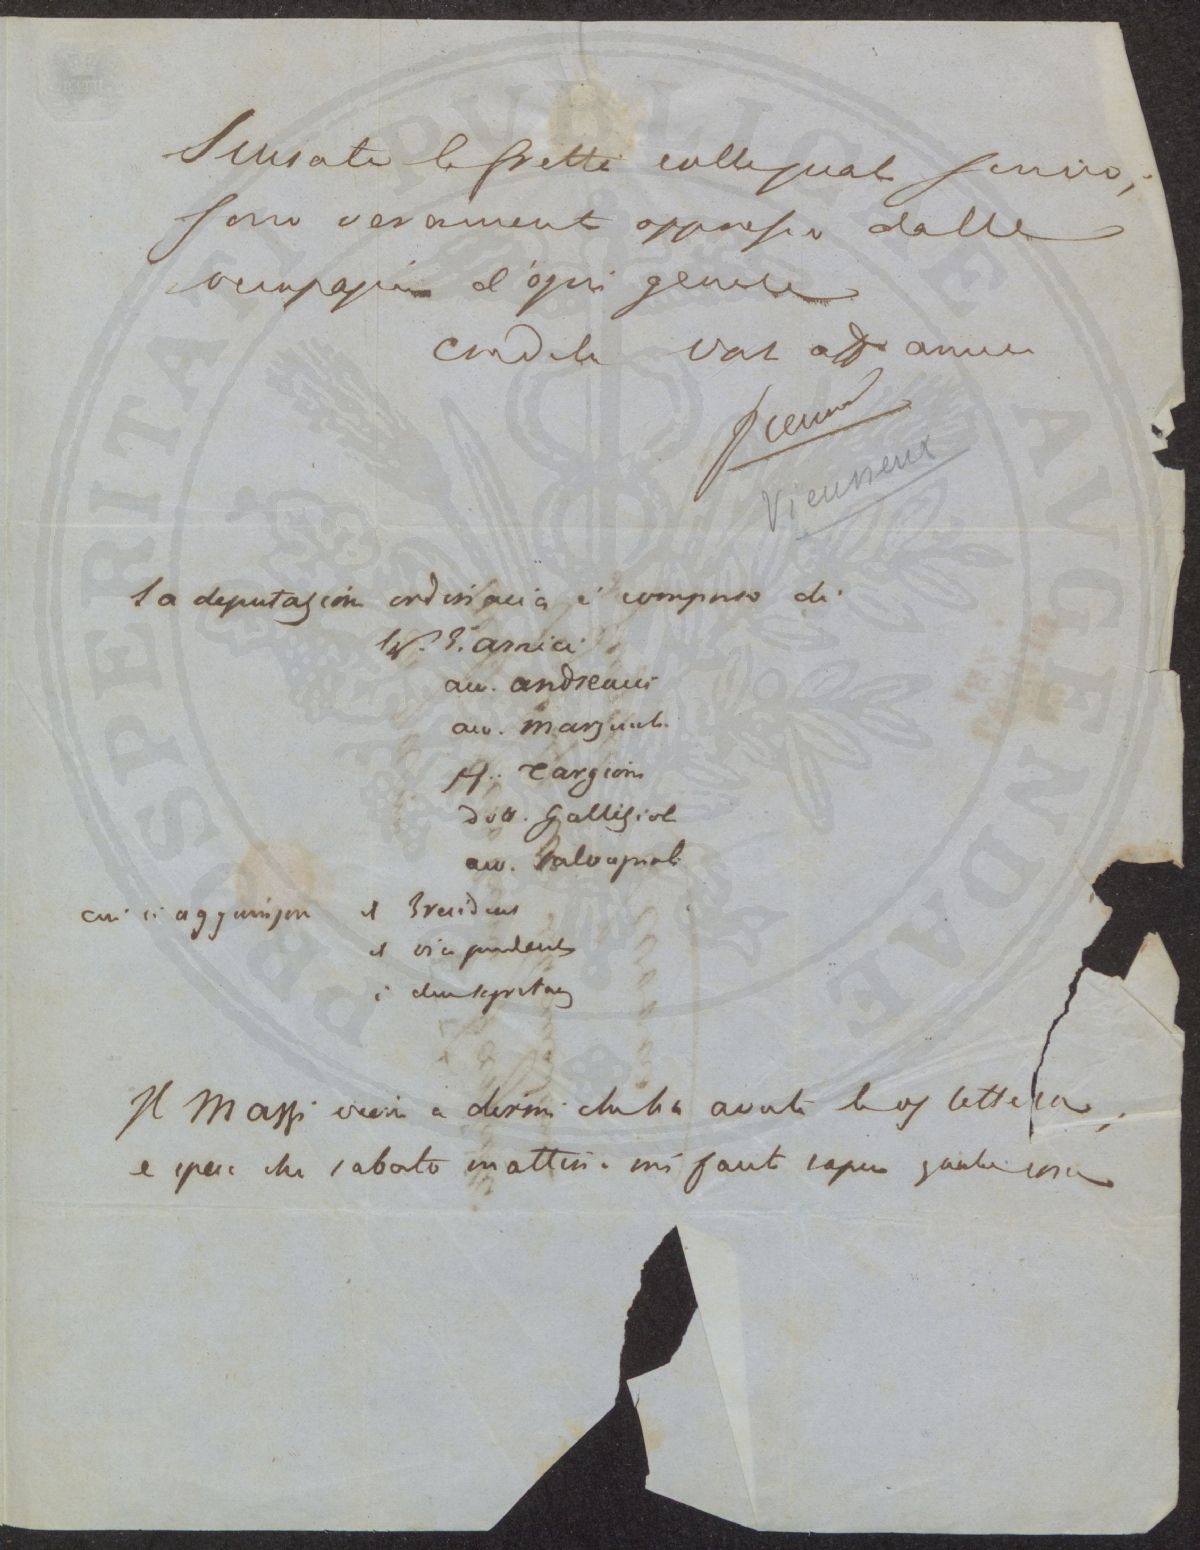 Scusate la fretta colla quale scrivo,
sono veramente oppresso dalle
occupazioni d'ogni genere
Credete Vos aff amico
Vieusseux
La deputazione ordinaria è composta di
P. Amici
avv. Andreucci
avv. Marzucchi
Pf. Targioni
Dott. Gallizioli
avv. Salvagnoli
cui si aggiungon il Presidente
il vice presidente
i due segretarj
Il Mazzi viene a dirmi che ha avuto la lettera,
e spera che sabato mattina mi farete sapere qualche cosa
PROSPERITATI PUBLICAE AVGENDAE